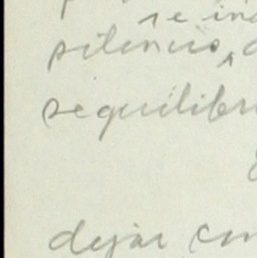 se in
silencio,
sequilibr
dejar con